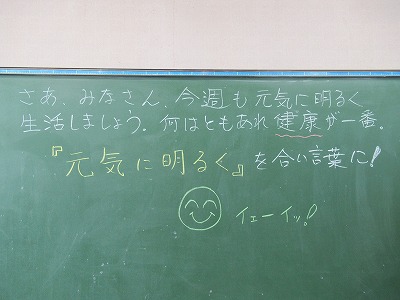 さあ、みなさん、今週も元気に明るく
生活しましょう。何はともあれ健康が一番。
『元気に明るく』を合い言葉に!
イェーイッ!